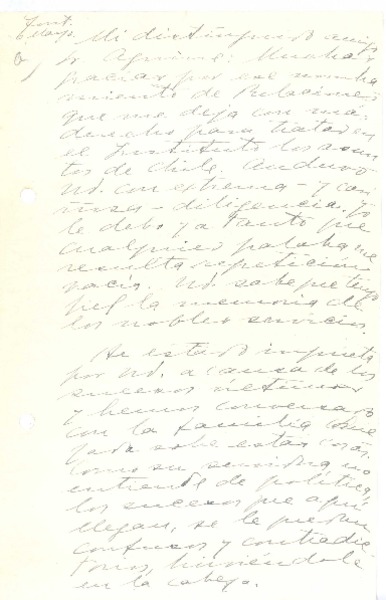 Mi distinguido amigo
Sr. Aguirre: Muchas
gracias por ese nombra
miento de Relaciones
que me deja con más
derecho para tratar en
el Instituto los asun
tos de Chile. Anduvo
Ud. con extrema - y cari
ñosa - diligencia. Yo
le debo ya tanto que
cualquier palabra me
resulta repetición
vacía. Ud. sabe que tengo
fiel la memoria de
los nobles servicios.
He estado inquieta
por Ud. a causa de los
sucesos últimos
y hemos conversado
con la familia
sobre estas cosas.
Como su servidora no
entiende de política,
los sucesos que aquí
llegan, se le quedan
confusos y contradic
torios, haciéndole
en la cabeza.